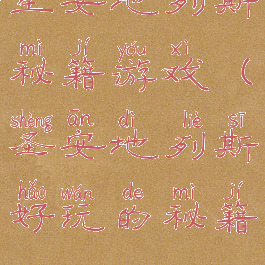 圣安地列斯
mì jí yóu xì
秘籍游戏（
shèng ān dì liè sī
圣安地列斯
hǎo wán de mì jí
好玩的秘籍